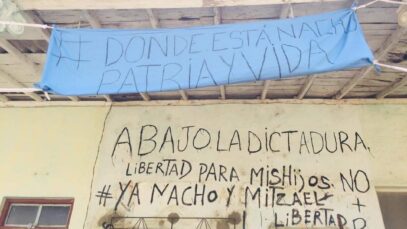 # DONDE ESTÁ NACHO
PATRIA Y VIDA
ABAJO LA DICTADURA,
LIBERTAD PARA MIS HIJOS.
NO
# YA NACHO Y MITZAEL
+
LIBERTAD